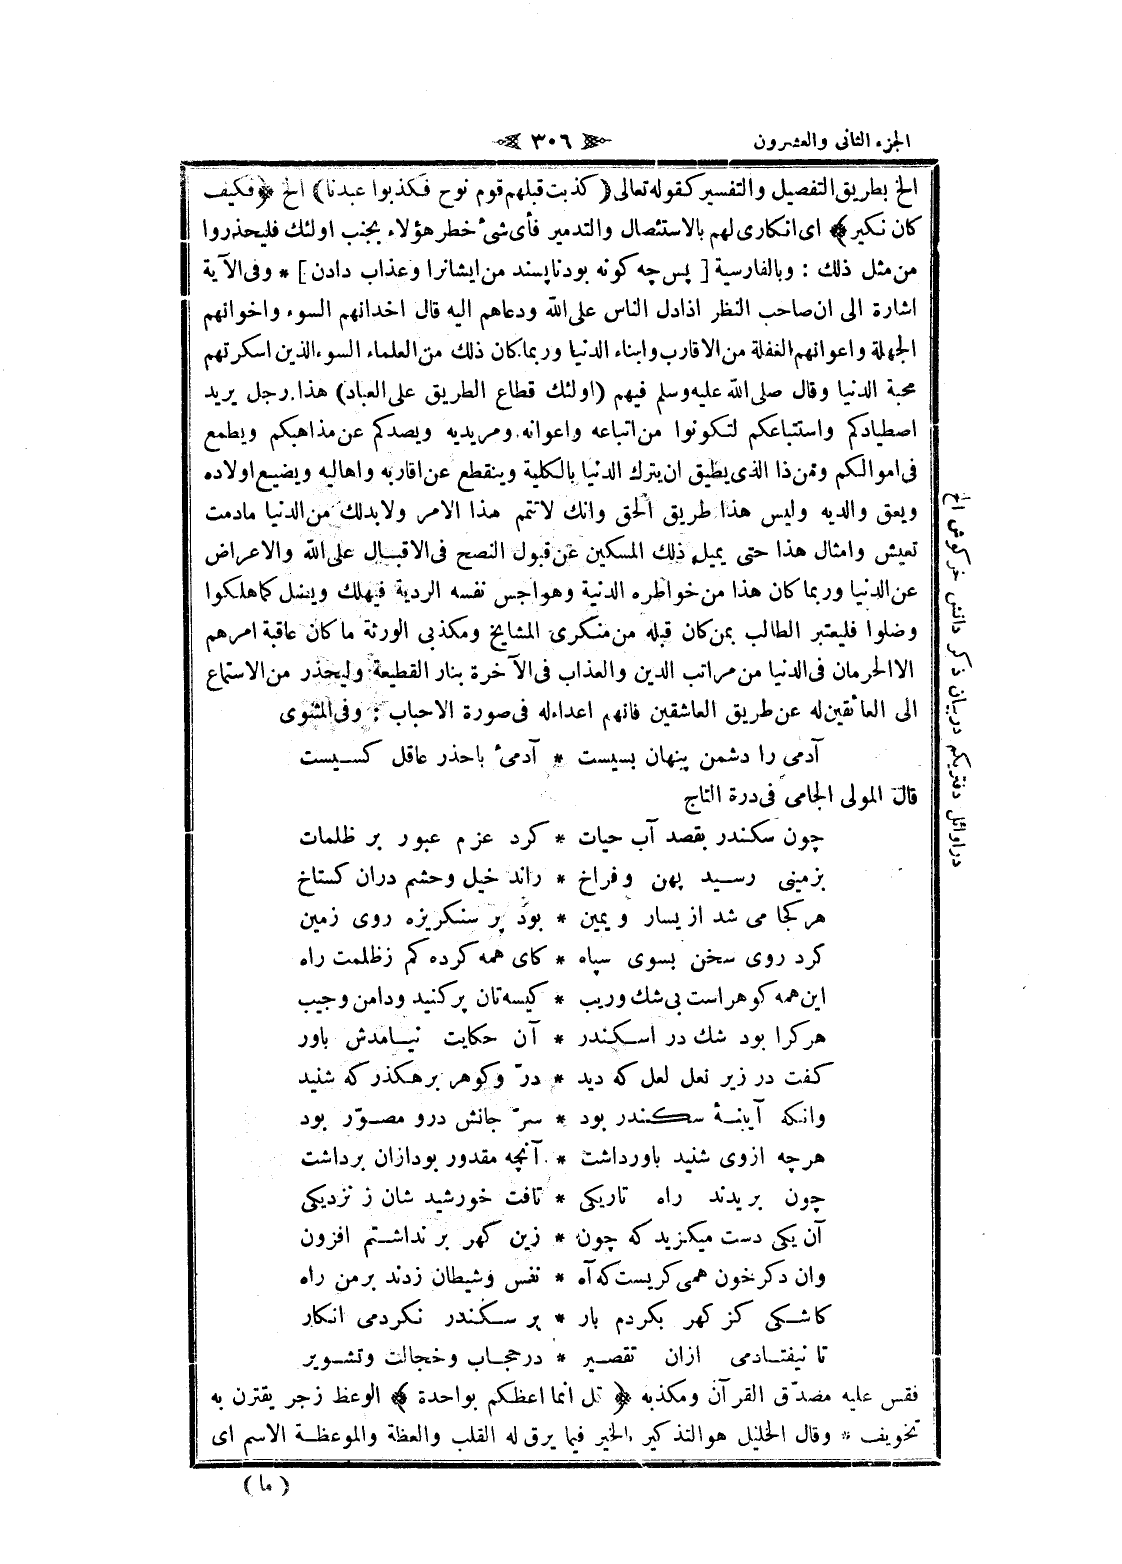 الجزء الثانى والعشرون
٣٠٦
الخ بطريق التفصيل والتفسير كقوله تعالى (كذبت قبلهم قوم نوح فكذبوا عبدنا) الخ ﴿ فكيف
كان نكير ﴾ اى انكارى لهم بالاستئصال والتدمير فأى شئ خطر هؤلاء بجنب اولئك فليحذروا
من مثل ذلك : وبالفارسية [ پس چه كونه بود ناپسند من ايشانرا وعذاب دادن ] * وفى الآية
اشارة الى ان صاحب النظر اذا دل الناس على الله ودعاهم اليه قال اخدانهم السوء واخوانهم
الجهلة واعوانهم الغفلة من الاقارب وابناء الدنيا وربما كان ذلك من العلماء السوء الذين اسكرتهم
محبة الدنيا وقال صلى الله عليه وسلم فيهم (اولئك قطاع الطريق على العباد) هذا رجل يريد
اصطيادكم واستتباعكم لتكونوا من اتباعه واعوانه ومريديه ويصدكم عن مذاهبكم ويطمع
فى اموالكم ومن ذا الذى يطيق ان يترك الدنيا بالكلية وينقطع عن اقاربه واهاليه ويضيع اولاده
ويعق والديه وليس هذا طريق الحق وانك لاتتم هذا الامر ولابدلك من الدنيا مادمت
تعيش وامثال هذا حتى يميل ذلك المسكين عن قبول النصح فى الاقبال على الله والاعراض
عن الدنيا وربما كان هذا من خواطره الدنية وهواجس نفسه الردية فيهلك ويضل كما هلكوا
وضلوا فليعتبر الطالب بمن كان قبله من منكرى المشايخ ومكذبى الورثة ما كان عاقبة امرهم
الا الحرمان فى الدنيا من مراتب الدين والعذاب فى الآخرة بنار القطيعة وليحذر من الاستماع
الى العائقين له عن طريق العاشقين فانهم اعداء له فى صورة الاحباب : وفى المثنوى
آدمى را دشمن پنهان بسيست * آدمئ باحذر عاقل كسيست
قال المولى الجامى فى درة التاج
چون سكندر بقصد آب حيات * كرد عزم عبور بر ظلمات
بزمينى رسيد پهن وفراخ * راند خيل وحشم دران كستاخ
هر كجا مى شد از يسار و يمين * بود پر سنكريزه روى زمين
كرد روى سخن بسوى سپاه * كاى همه كرده كم زظلمت راه
اين همه كوهر است بى شك وريب * كيسه تان پر كنيد ودامن وجيب
هر كرا بود شك در اسكندر * آن حكايت نيامدش باور
كفت در زير نعل لعل كه ديد * درّ وكوهر برهكذر كه شنيد
وانكه آيينۀ سكندر بود * سرّ جانش درو مصوّر بود
هرچه ازوى شنيد باورداشت * آنچه مقدور بودازان برداشت
چون بريدند راه تاريكى * تافت خورشيد شان ز نزديكى
آن يكى دست ميكزيد كه چون * زين كهر بر نداشتم افزون
وان دكر خون همى كريست كه آه * نفس وشيطان زدند برمن راه
كاشكى كز كهر بكردم بار * بر سكندر نكردمى انكار
تا نيفتادمى ازان تقصير * درحجاب وخجالت وتشوير
فقس عليه مصدّق القرآن ومكذبه ﴿ قل انما اعظكم بواحدة ﴾ الوعظ زجر يقترن به
تخويف * وقال الخليل هو التذكير بالخير فيما يرق له القلب والعظة والموعظة الاسم اى
(ما)
در اوائل دفتر يكم دربيان ذكر دانش خركوش الخ